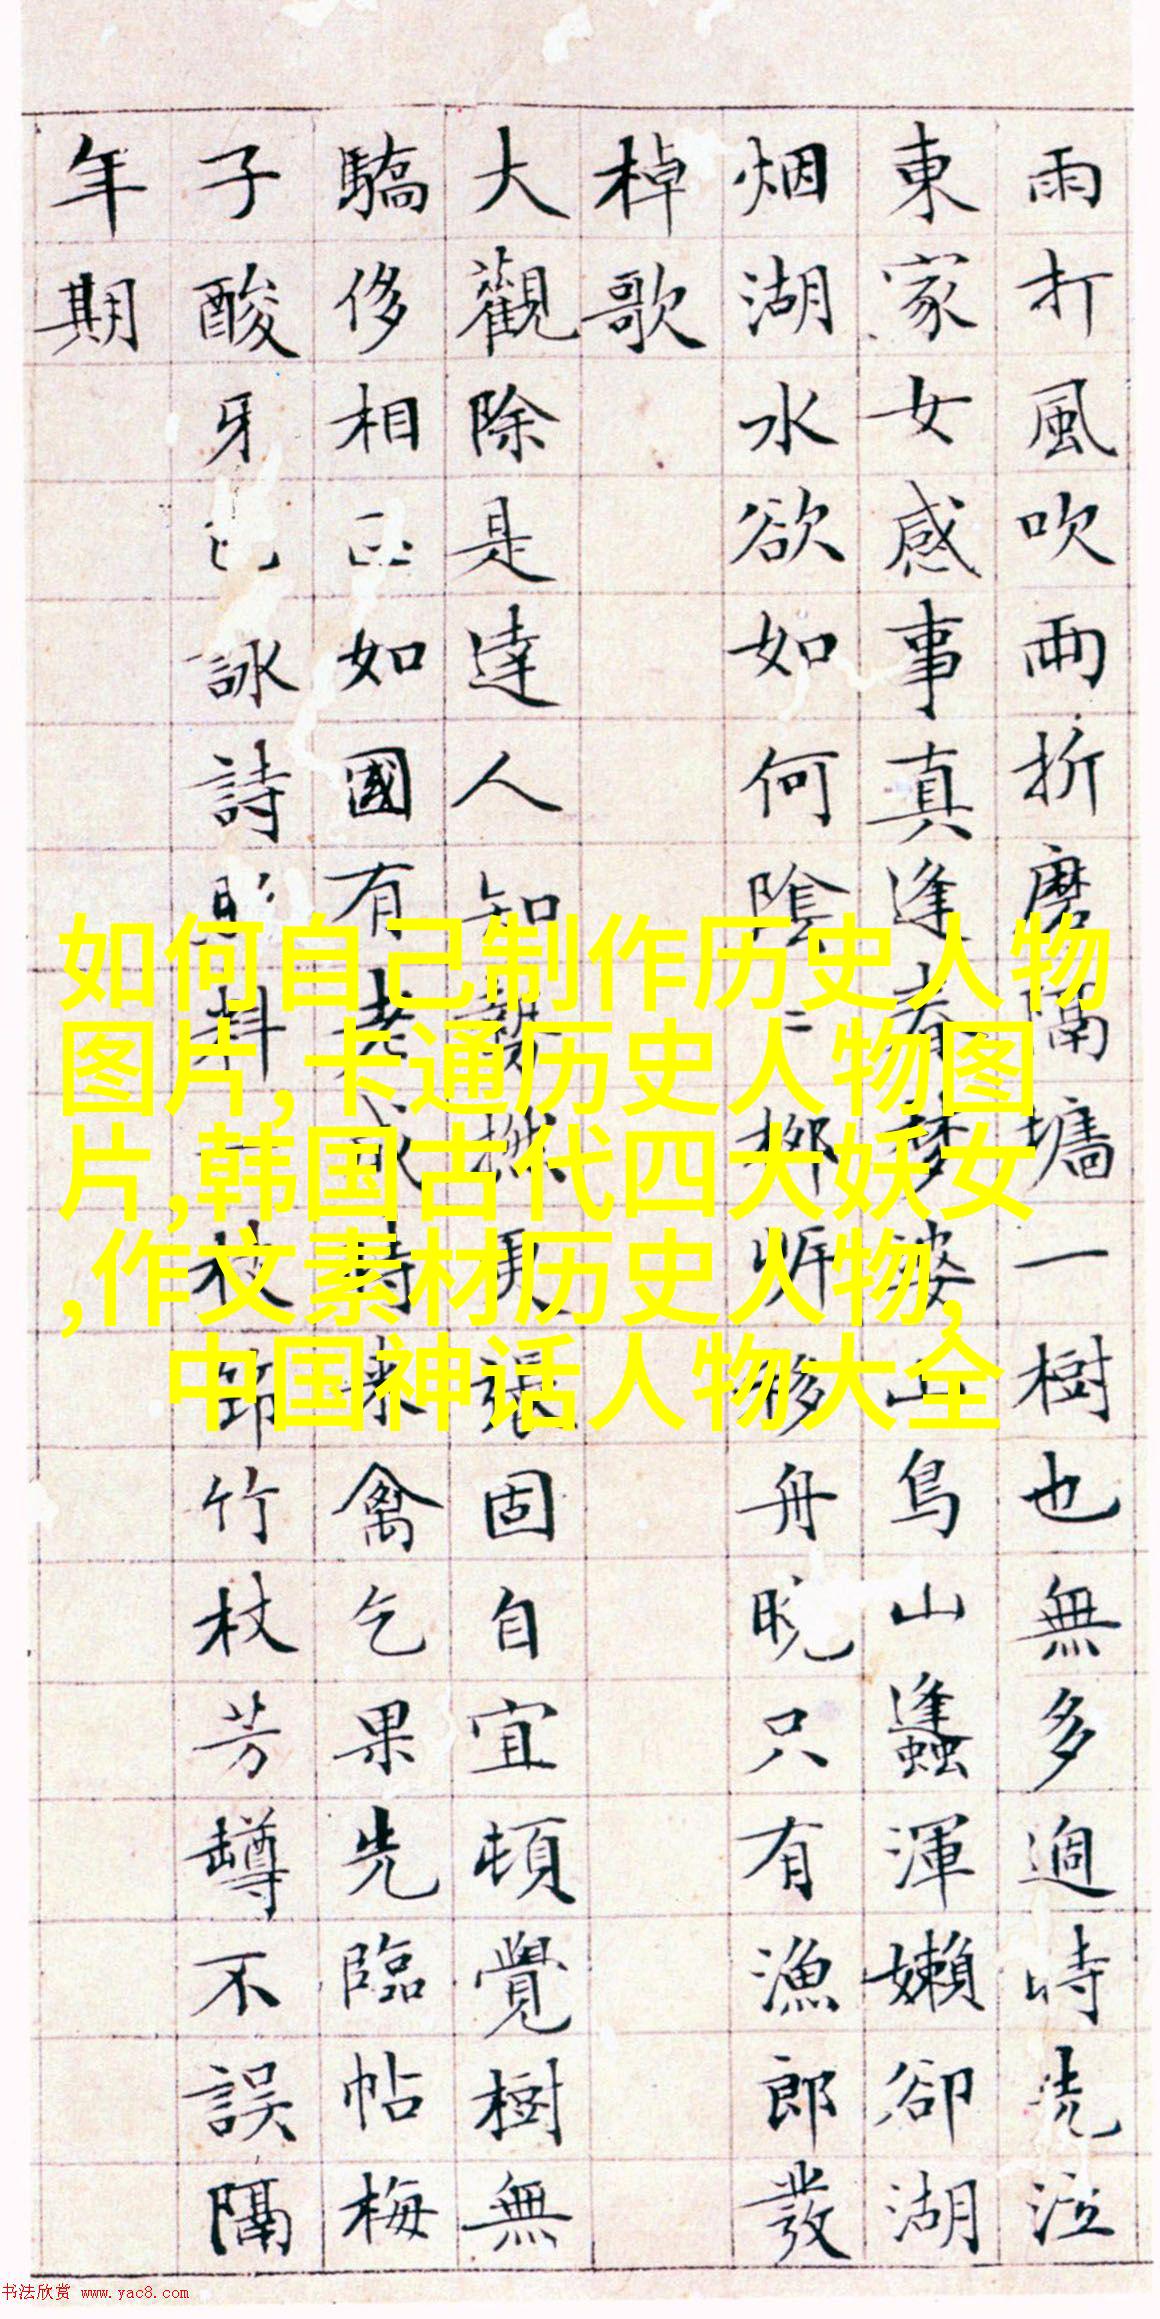 雨打風吹雨折磨隔墻一樹也無多適時先泣
東家女感事真逢春夢婆山鳥山蠭渾嬾卻湖
烟湖水欲如何陰二柳炉移舟晚只有漁郎發
棹歌
大觀除是達人知勢撚更張固自宜頓覺樹無
驕侈相如國有老成時來禽乞果先臨帖梅
子酸牙詠詩料一枝節竹杖芳罇不誤隔
年期
如何自己制作历史人物
图片,卡通历史人物图
片,韩国古代四大妖女
,作文素材历史人物,
中国神话人物大全
书法欣赏 www.yac8.com